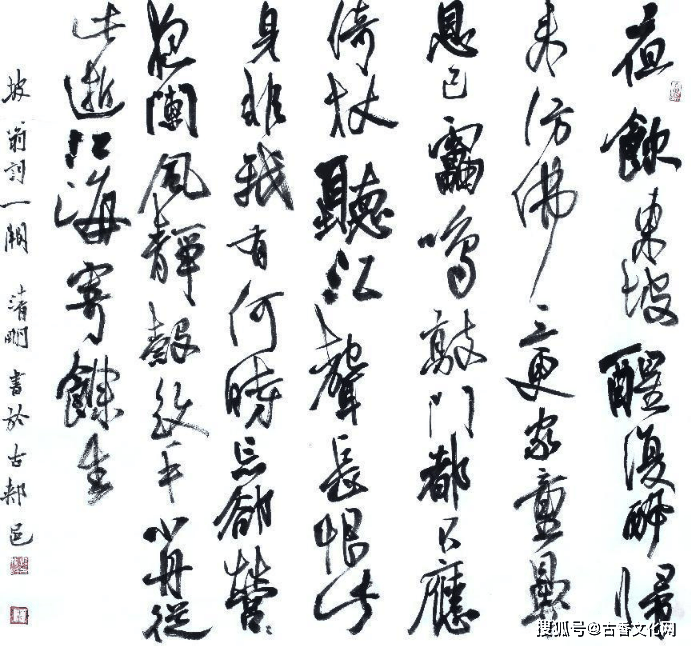 夜飲東坡醒復醉歸
來仿佛三更家童鼻
息已靁鳴敲門都不應
倚杖聽江聲長恨此
身非我有何時忘卻營〻
夜闌風靜縠紋平小舟從
此逝江海寄餘生
坡翁詞一闋 清明書於古郟邑
搜狐号@古香文化网